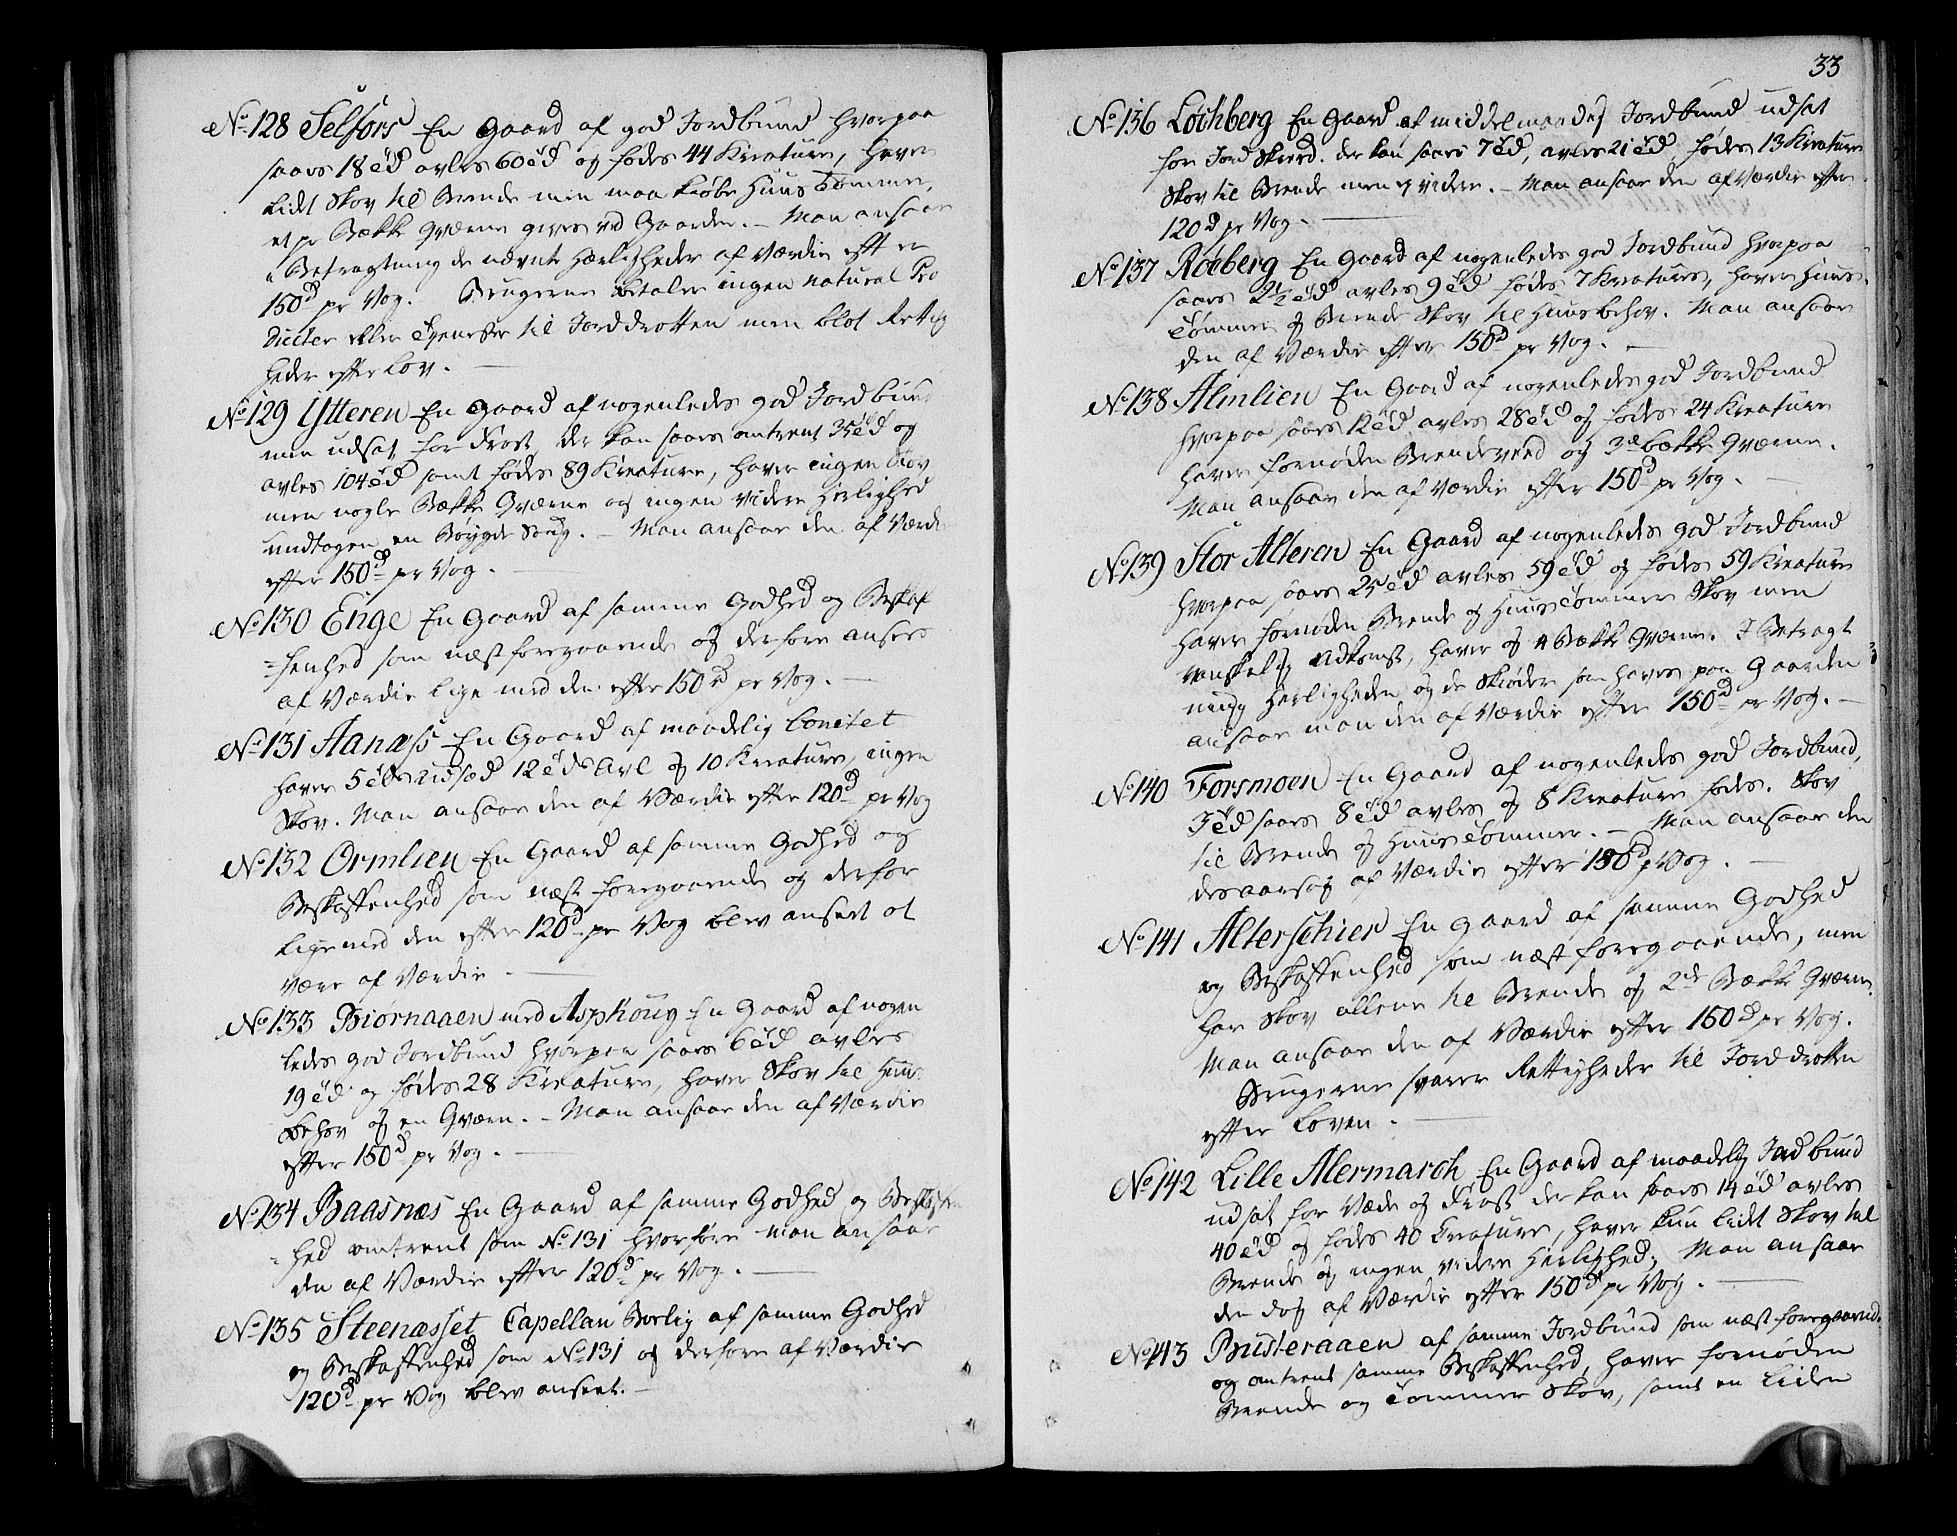 No 128 Selfors En Gaard af god Jordbund hvorpaa
saaes 18 td avles 60 td og fødes 44 Kreature, haver
lidt Skov til Brende men maa kiøbe Huus Tømmer,
et pr Bække Qværne gives ved Gaarden. – Man ansaae
i Betragtning de nævnte Herligheder af Værdie efter
150 d pr Vog. Brugerne betaler ingen natural Pro
ducter eller Tienester til Jorddrotten men blot Rettig
heder efter Lov. —
No 129 Ytteren En Gaard af nogenledes god Jordbund
men udsat for Frost, der kan saaes omtrent 35 td og
avles 104 td samt fødes 89 Kreature, haver ingen Skov
men nogle Bække Qværne og ingen videre Herlighed
undtagen en Bøygde Saug. – Man ansaae den af Værdie
efter 150 d pr Vog. —
No 130 Enge En Gaard af samme Godhed og Beskaf
=fenhed som næstforegaaende og derfore ansees
af Værdie lige med den efter 150 d pr Vog. —
No 131 Aanæss En Gaard af maadelig bonitet
haver 5 tds udsæd 12 tds Avl og 10 Kreature, ingen
Skov. Man ansaae den af Værdie efter 120 d pr Vog
No 132 Ormlien En Gaard af samme Godhed og
Beskaffenhed som næst foregaaende og derfor
lige med den efter 120 d pr Vog blev ansert at
være af Værdie. —
No 133 Biørnaaen med Asphoug En Gaard af nogen
ledes god Jordbund hvorpaa saaes 6 td avles
19 td og fødes 28 Kreature, haver Skov til Huus
behov og en Qværn. – Man ansaae den af Værdie
efter 150 d pr Vog. —
No 134 Baasnæs En Gaard af samme Godhed og Beskaffen
=hed omtrent som No 131 hvorfore man ansaae
den af Værdie efter 120 d pr Vog. —
No 135 Steenæsset Capellan Boelig af samme Godhed
og Beskaffenhed som No 131 og derfore af Værdie
120 d pr Vog blev anseet. —
33
No 136 Løchberg En Gaard af middelmaadig Jordbund udsat
for Jord Skred. der kan saaes 7 td, avles 21 td, fødes 13 Kreature
Skov til Brende men ey videre. – Man ansaae den af Værdie efter
120 d pr Vog. —
No 137 Røeberg En Gaard af nogenledes god Jordbund hvorpaa
saaes 2½ td avles 9 td fødes 7 Kreature, haver Huus
Tømmer og Brende Skov til Huusbehov. Man ansaae
den af Værdie efter 150 d pr Vog. —
No 138 Almlien En Gaard af nogenledes god Jordbund
hvorpaa saaes 12 td. avles 28 td og fødes 24 Kreature
haver fornøden Brendeveed og 3de bække Qværne.
Man ansaae den af Værdie efter 150 d pr Vog. —
No 139 Stor Alteren En Gaard af nogenledes god Jordbund
hvorpaa saaes 25 td avles 59 td og fødes 59 Kreature
haver fornøden Brende og Huustømmer Skov men
vanskelig Udkomst, haver og 4 Bække Qværne. I Betragt
ning Herligheden og de Skiøder som haves paa Gaarden
ansaae man den af Værdie efter 150 d pr Vog. —
No 140 Forsmoen En Gaard af nogenledes god Jordbund,
3 td saaes 8 td avles og 8 Kreature fødes. Skov
til Brende og Huustømmer. – Man ansaae den
desaarsag af Værdie efter 150 d pr Vog. —
No 141 Alterschier En Gaard af samme Godhed
og Beskaffenhed som næst foregaaende, men
har Skov allene til Brende og 2de Bække Qværne.
Man ansaae den af Værdie efter 150 d pr Vog.
Brugerne svarer Rettigheder til Jorddrotten
efter Loven. —
No 142 Lille Alermarch En Gaard af maadelig Jordbund
udsat for Væde og Frost der kan saaes 14 td avles
40 td og fødes 40 Creature, haver kun lidt Skov til
Brende og ingen videre Herlighed; Man ansaae
den dog af Værdie efter 150 d pr Vog. —
No 143 Busteraaen af samme Jordbund som næst foregaaend.
og omtrent samme Beskaffenhed, haver fornøden
Brende og Tømmer Skov, samt en liden